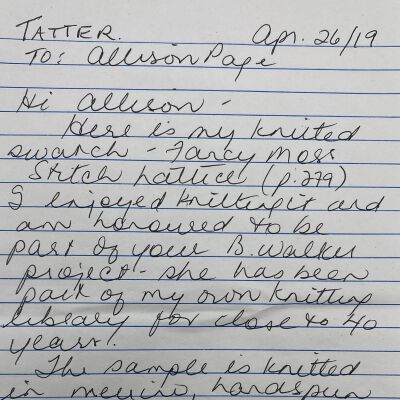 TATTER. Apr. 26/19
TO: Allison Page
Hi Allison -
Here is my knitted
swatch - Fancy Moss
Stitch Lattice (p. 279)
I enjoyed knitting it and
am honoured to be
part of your B. Walker
project - she has been
part of my own knitting
library for close to 40
years!
The sample is knitted
in merino, handspun